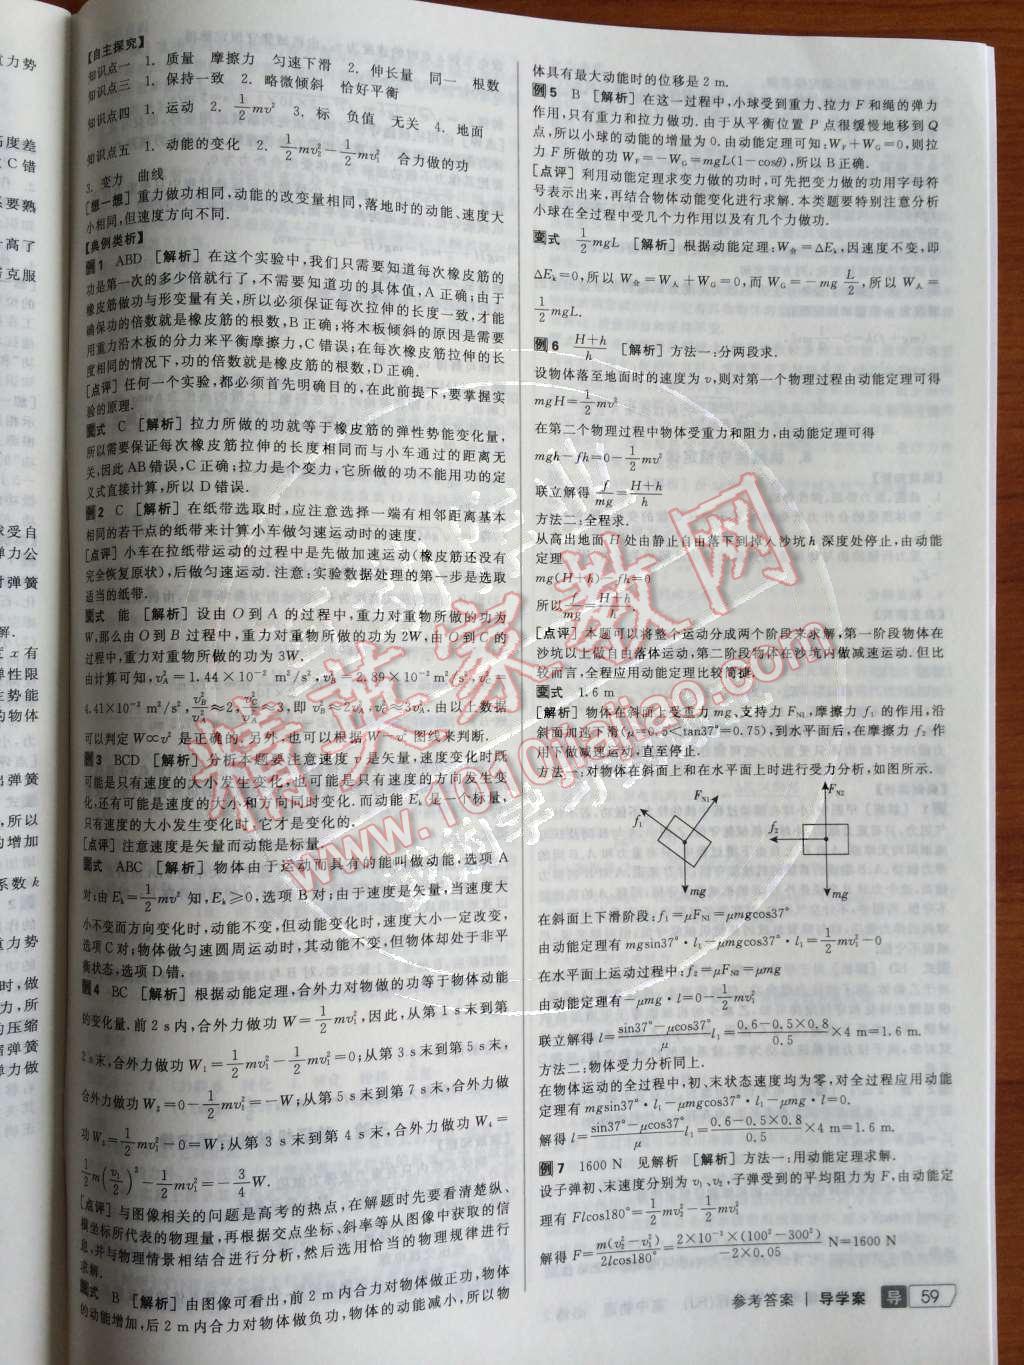 【自主探究】
知识点一 1. 质量 摩擦力 匀速下滑 2. 伸长量 同一 根数
知识点三 1. 保持一致 2. 略微倾斜 恰好平衡
知识点四 1. 运动 2. 1/2mv² 3. 标 负值 无关 4. 地面
知识点五 1. 动能的变化 2. 1/2mv₂²−1/2mv₁² 合力做的功
3. 变力 曲线
[想一想] 重力做功相同,动能的改变量相同,落地时的动能、速度大
小相同,但速度方向不同.
【典例类析】
例1 ABD [解析] 在这个实验中,我们只需要知道每次橡皮筋的
功是第一次的多少倍就行了,不需要知道功的具体值,A正确;由于
橡皮筋做功与形变量有关,所以必须保证每次拉伸的长度一致,才能
确保功的倍数就是橡皮筋的根数,B正确;将木板倾斜的原因是需要
用重力沿木板的分力来平衡摩擦力,C错误;在每次橡皮筋拉伸的长
度相同的情况下,功的倍数就是橡皮筋的根数,D正确.
[点评] 任何一个实验,都必须首先明确目的,在此前提下,要掌握实
验的原理.
变式 C [解析] 拉力所做的功就等于橡皮筋的弹性势能变化量,
所以需要保证每次橡皮筋拉伸的长度相同而与小车通过的距离无
关,因此AB错误,C正确;拉力是个变力,它所做的功不能用功的定
义式直接计算,所以D错误.
例2 C [解析] 在纸带选取时,应注意选择一端有相邻距离基本
相同的若干点的纸带来计算小车做匀速运动时的速度.
[点评] 小车在拉纸带运动的过程中是先做加速运动(橡皮筋还没有
完全恢复原状),后做匀速运动.注意:实验数据处理的第一步是选取
适当的纸带.
变式 能 [解析] 设由O到A的过程中,重力对重物所做的功为
W,那么由O到B过程中,重力对重物所做的功为2W,由O到C的
过程中,重力对重物所做的功为3W.
由计算可知,v_A²=1.44×10⁻² m²/s²,v_B²=2.89×10⁻² m²/s²,v_C²=
4.41×10⁻² m²/s²,v_B²/v_A²≈2,v_C²/v_A²≈3,即v_B²≈2v_A²,v_C²≈3v_A².由以上数据
可以判定W∝v²是正确的.另外,也可以根据W−v²图线来判断.
例3 BCD [解析] 分析本题要注意速度v是矢量,速度变化时既
可能是只有速度的大小发生变化,也可能是只有速度的方向发生变
化,还有可能是速度的大小和方向同时变化.而动能Eₖ是一个标量,
只有速度的大小发生变化时,它才是变化的.
[点评] 注意速度是矢量而动能是标量.
变式 ABC [解析] 物体由于运动而具有的能叫做动能,选项A
对;由Eₖ=1/2mv²知,Eₖ≥0,选项B对;由于速度是矢量,当速度大
小不变而方向变化时,动能不变,但动能变化时,速度大小一定改变,
选项C对;物体做匀速圆周运动时,其动能不变,但物体却处于非平
衡状态,选项D错.
例4 BC [解析] 根据动能定理,合外力对物做的功等于物体动能
的变化量.前2 s内,合外力做功W=1/2mv₁²,因此,从第1 s末到第
2 s末,合外力做功W₁=1/2mv₁²−1/2mv₁²=0;从第3 s末到第5 s末,
合外力做功W₂=0−1/2mv₁²=−W;从第5 s末到第7 s末,合外力做
功W₃=1/2mv₁²−0=W;从第3 s末到第4 s末,合外力做功W₄=
1/2m(v₁/2)²−1/2mv₁²=−3/4W.
[点评] 与图像相关的问题是高考的热点,在解题时先要看清楚纵、
横坐标所代表的物理量,再根据交点坐标、斜率等从图像中获取的信
息,并与物理情景相结合进行分析,然后选用恰当的物理规律进行
求解.
变式 B [解析] 由图像可看出,前2 m内合力对物体做正功,物体
的动能增加,后2 m内合力对物体做负功,物体的动能减小,所以物
体具有最大动能时的位移是2 m.
例5 B [解析] 在这一过程中,小球受到重力、拉力F和绳的弹力
作用,只有重力和拉力做功.由于从平衡位置P点很缓慢地移到Q
点,所以小球的动能的增量为0.由动能定理可知:W_F+W_G=0,则拉
力F所做的功W_F=−W_G=mgL(1−cosθ),所以B正确.
[点评] 利用动能定理求变力做的功时,可先把变力做的功用字母符
号表示出来,再结合物体动能变化进行求解.本类题要特别注意分析
小球在全过程中受几个力作用以及有几个力做功.
变式 1/2mgL [解析] 根据动能定理:W合=ΔEₖ,因速度不变,即
ΔEₖ=0,所以W合=W人+W_G=0,而W_G=−mg L/2,所以W人=
1/2mgL.
例6 (H+h)/h [解析] 方法一:分两段求.
设物体落至地面时的速度为v,则对第一个物理过程由动能定理可得
mgH=1/2mv²
在第二个物理过程中物体受重力和阻力,由动能定理可得
mgh−fh=0−1/2mv²
联立解得f/mg=(H+h)/h
方法二:全程求.
从高出地面H处由静止自由落下到掉入沙坑h深度处停止,由动能
定理
mg(H+h)−fh=0
所以f/mg=(H+h)/h
[点评] 本题可以将整个运动分成两个阶段来求解,第一阶段物体在
沙坑以上做自由落体运动,第二阶段物体在沙坑内做减速运动.但比
较而言,全程应用动能定理比较简捷.
变式 1.6 m
[解析] 物体在斜面上受重力mg、支持力F_N1、摩擦力f₁的作用,沿
斜面加速下滑(μ=0.5<tan37°=0.75),到水平面后,在摩擦力f₂作
用下做减速运动,直至停止.
方法一:对物体在斜面上和在水平面上时进行受力分析,如图所示.
F_N1 F_N2
f₁ f₂
mg mg
在斜面上下滑阶段:f₁=μF_N1=μmgcos37°
由动能定理有mgsin37°·l₁−μmgcos37°·l₁=1/2mv₁²−0
在水平面上运动过程中:f₂=μF_N2=μmg
由动能定理有−μmg·l=0−1/2mv₁²
联立解得l=(sin37°−μcos37°)/μ l₁=(0.6−0.5×0.8)/0.5×4 m=1.6 m.
方法二:物体受力分析同上.
在物体运动的全过程中,初、末状态速度均为零,对全过程应用动能
定理有mgsin37°·l₁−μmgcos37°·l₁−μmg·l=0.
解得l=(sin37°−μcos37°)/μ l₁=(0.6−0.5×0.8)/0.5×4 m=1.6 m.
例7 1600 N 见解析 [解析] 方法一:用动能定理求解.
设子弹初、末速度分别为v₁、v₂,子弹受到的平均阻力为F,由动能定
理有Flcos180°=1/2mv₂²−1/2mv₁²
解得F=m(v₂²−v₁²)/(2lcos180°)=2×10⁻³×(100²−300²)/(−2×0.05) N=1600 N
参考答案 | 导学案 导 59
精英家教网
www.1010jiajiao.com